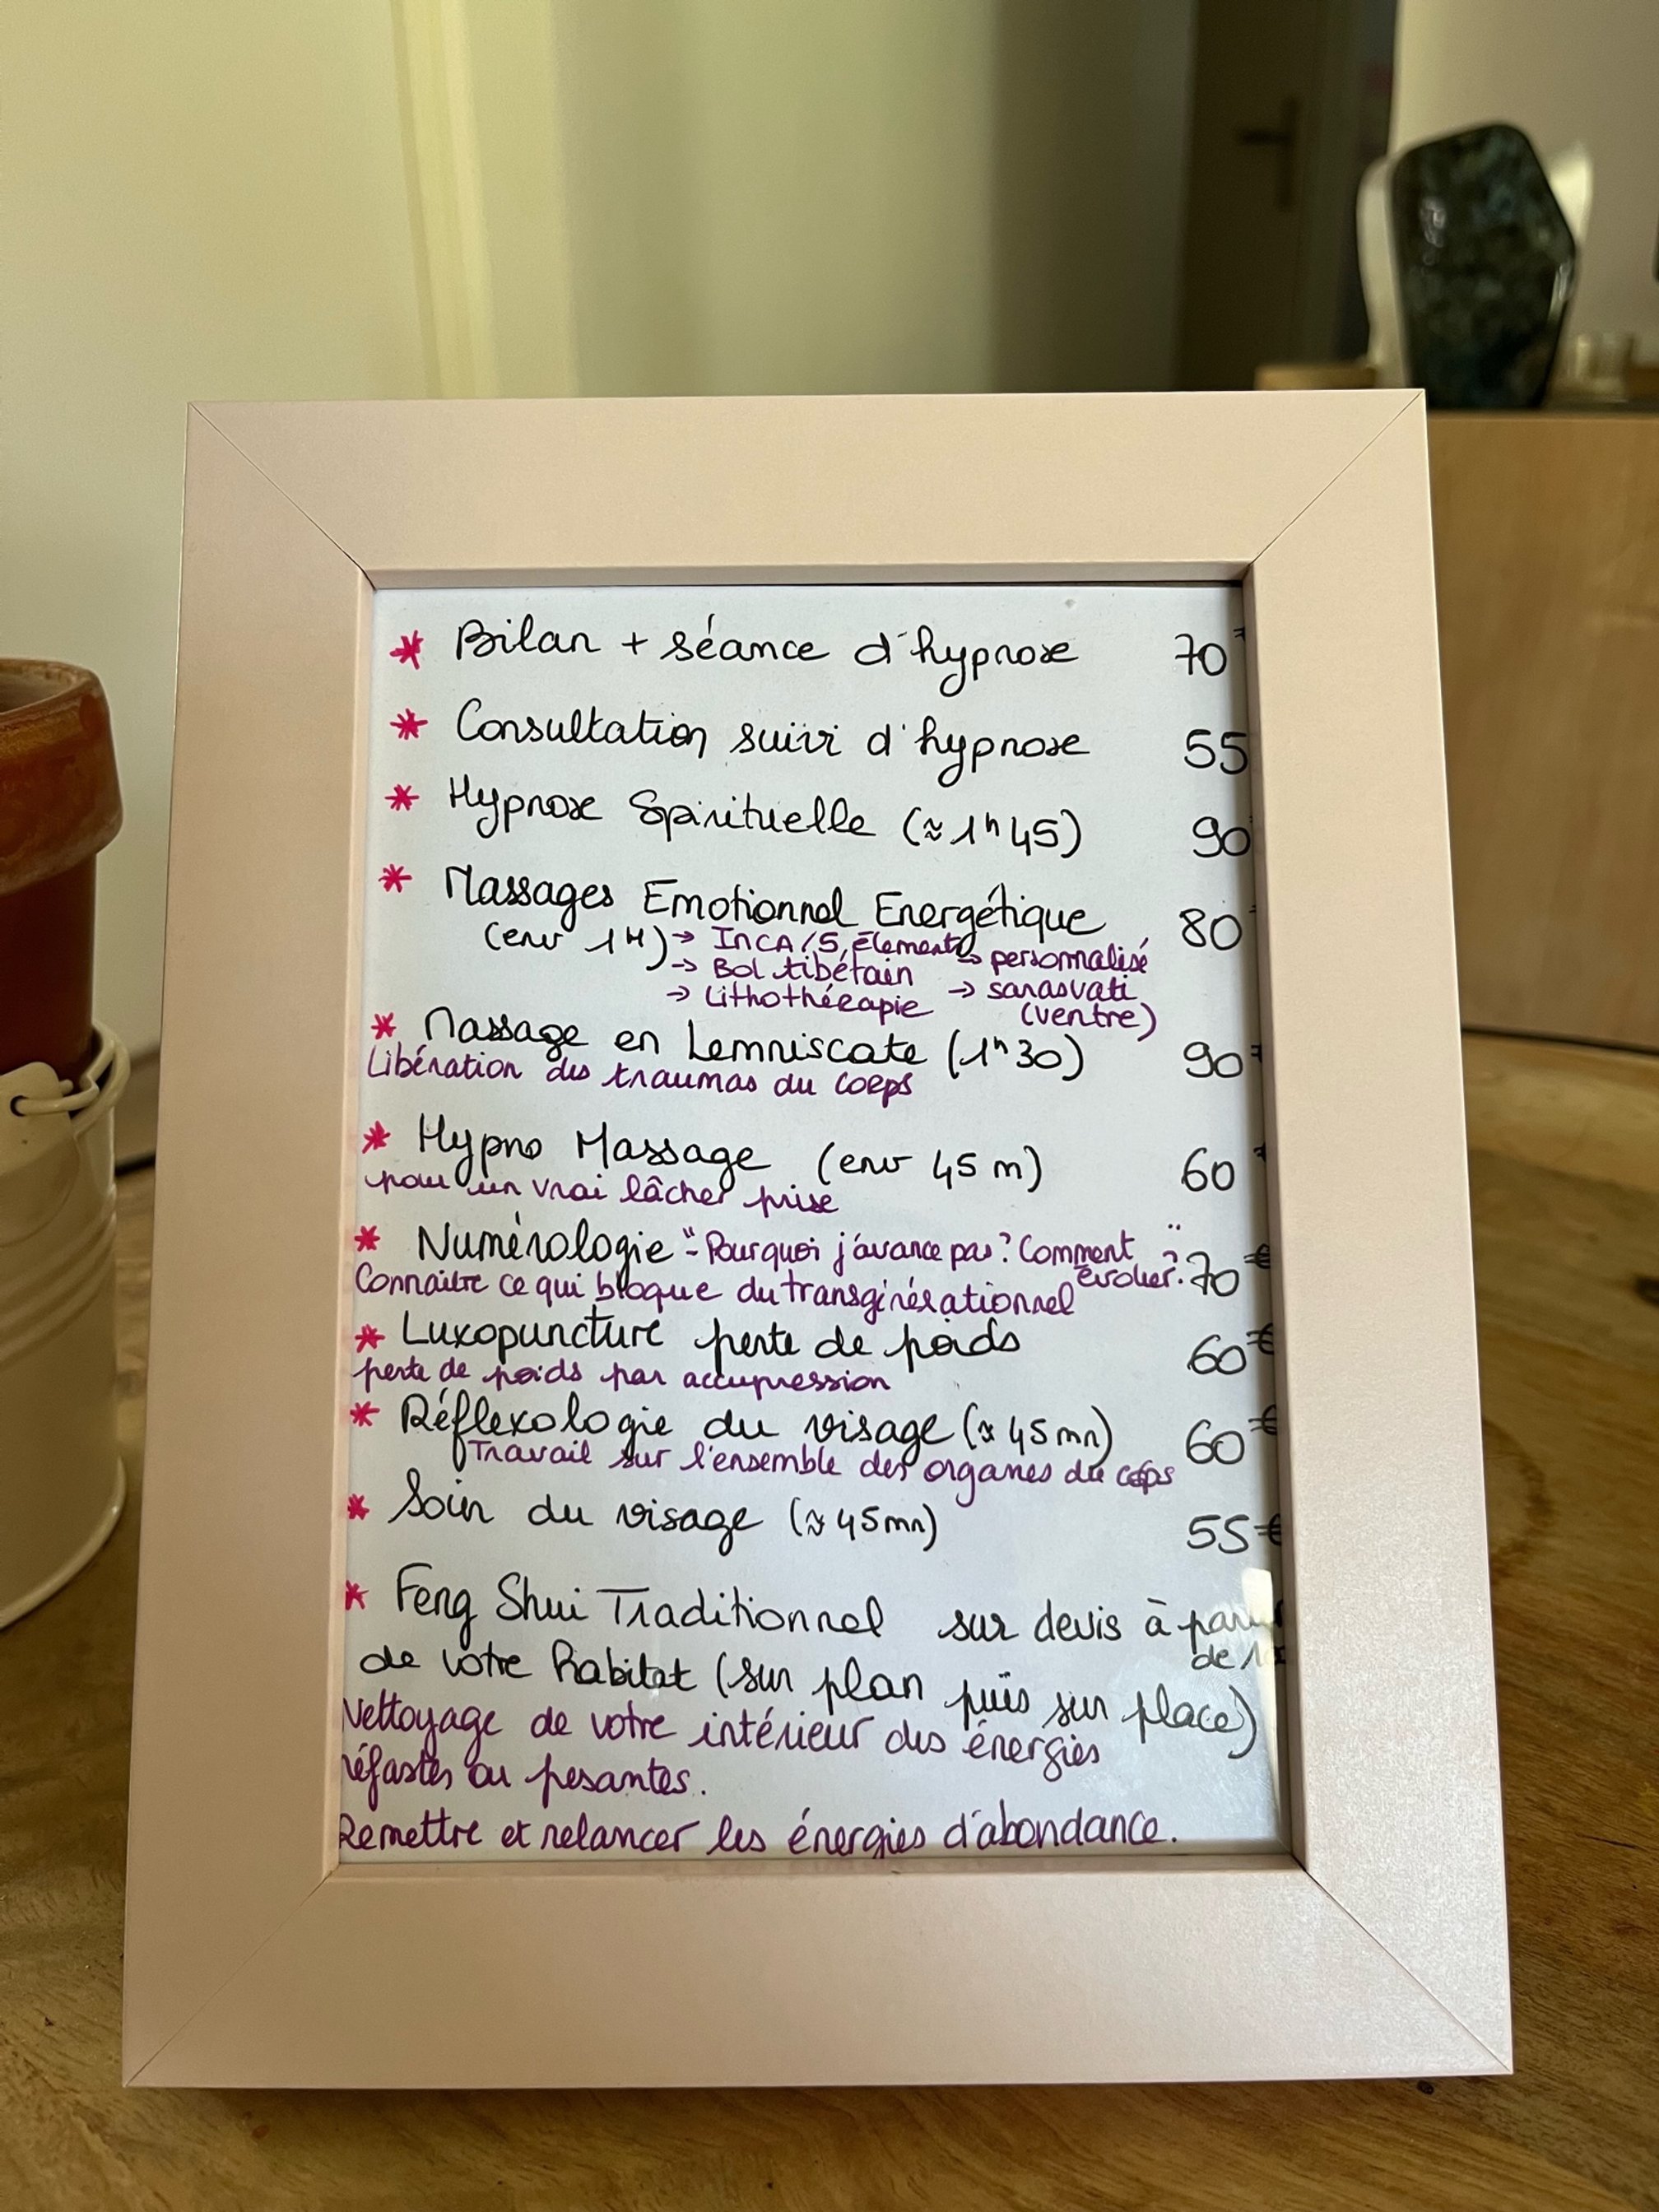 * Bilan + séance d'hypnose 70
* Consultation suivi d'hypnose 55
* Hypnose Spirituelle (≈ 1h45) 90
* Massages Emotionnel Energétique 80
(env 1H) → INCA/5 éléments → personnalisé
→ Bol tibétain → sarasvati
→ Lithothérapie (ventre)
* Massage en Lemniscate (1h30) 90
Libération des traumas du corps
* Hypno Massage (env 45 m) 60
pour un vrai lâcher prise
* Numérologie "- Pourquoi j'avance pas? Comment évoluer?" 70€
Connaitre ce qui bloque du transgénérationnel
* Luxopuncture perte de poids 60€
perte de poids par accupression
* Réflexologie du visage (≈ 45mn) 60€
Travail sur l'ensemble des organes du corps
* Soin du visage (≈ 45mn) 55€
* Feng Shui Traditionnel sur devis à
de votre habitat (sur plan puis sur place) de
Nettoyage de votre intérieur des énergies
néfastes ou pesantes.
Remettre et relancer les énergies d'abondance.